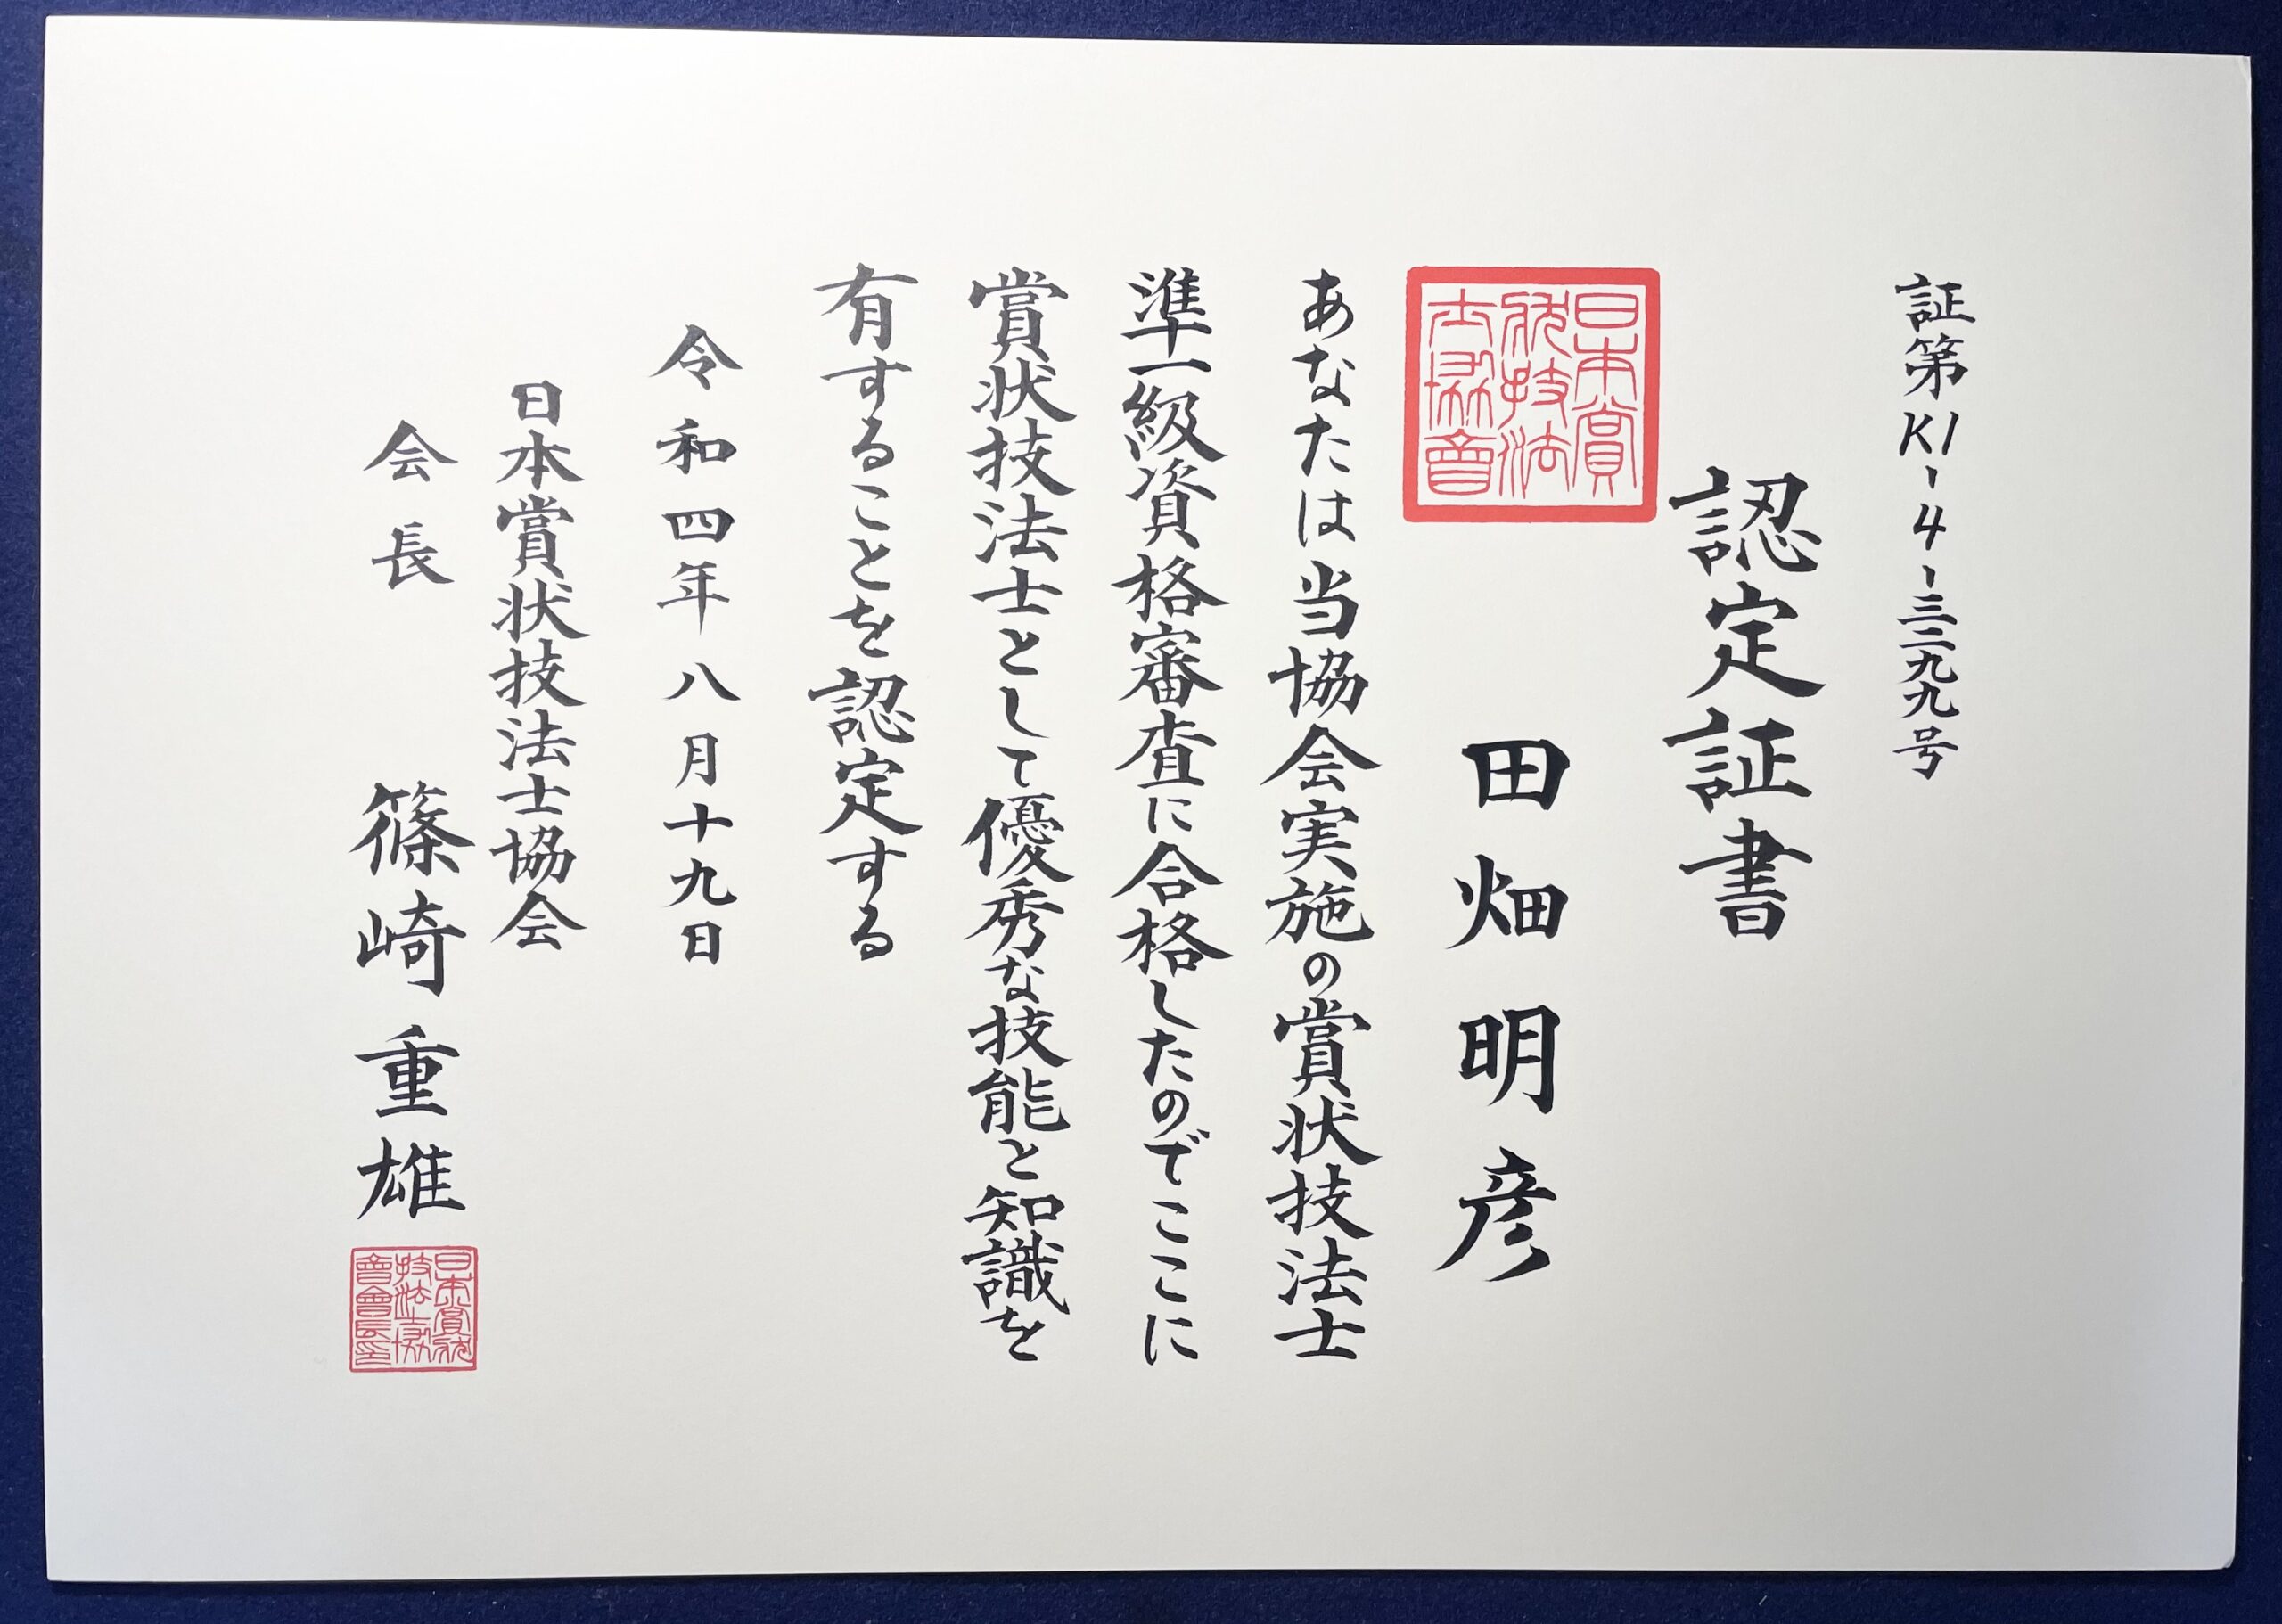 証第K1-4-三二九九号
認定証書
田畑明彦
日本賞
状技法
士協會
あなたは当協会実施の賞状技法士
準一級資格審査に合格したのでここに
賞状技法士として優秀な技能と知識を
有することを認定する
令和四年八月十九日
日本賞状技法士協会
会長 篠崎重雄
日本賞状
技法士協
會會長印